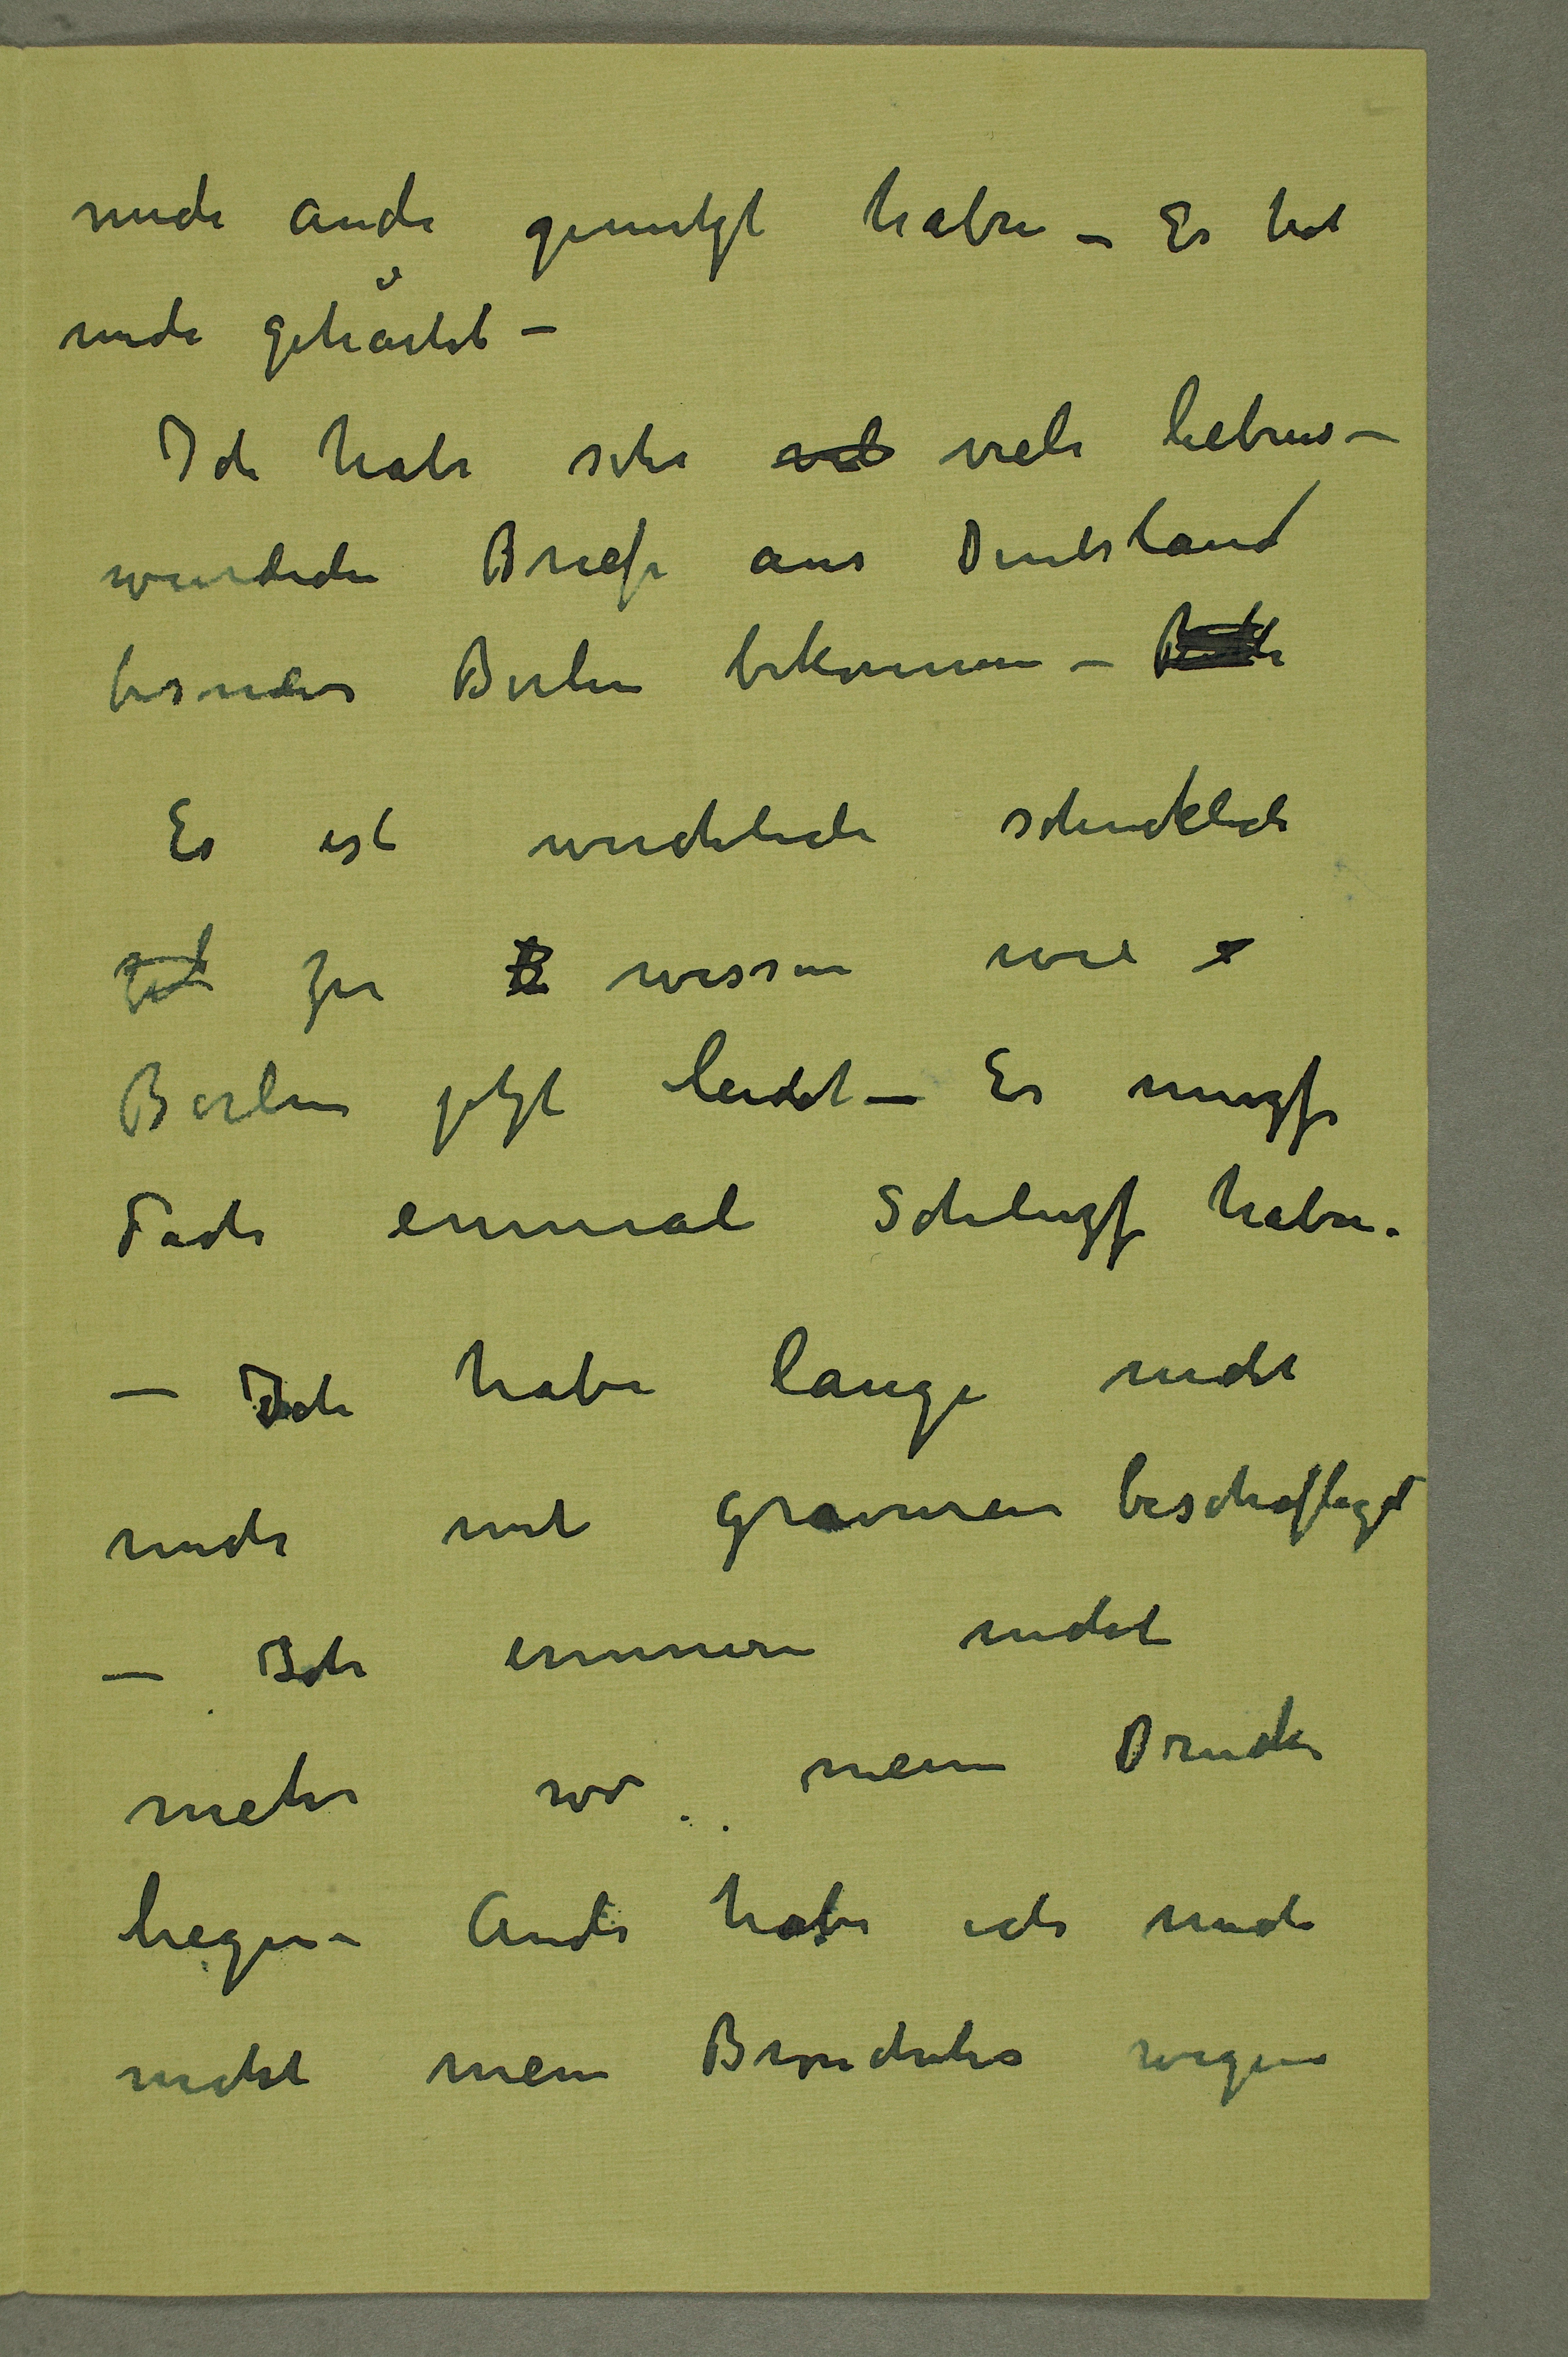 mich auch genützt haben – Es hat
mich gehärtet –
Ich habe sehr viel viele liebens–
wurdichen Briefe aus Deutsland
besonders Berlin bekommen –
Es ist wirchlich schrecklich
zu B wissen wie
Berlin jetzt leidet – Es muzs
dach einmal Schluzs haben.
– Ich habe lange nicht
mich mit Gravuren beschaftigt
– Ich erinnern nicht
mehr wo meine Drucke
liegen – Auch habe ich mich
nicht mein Bronchites wegen